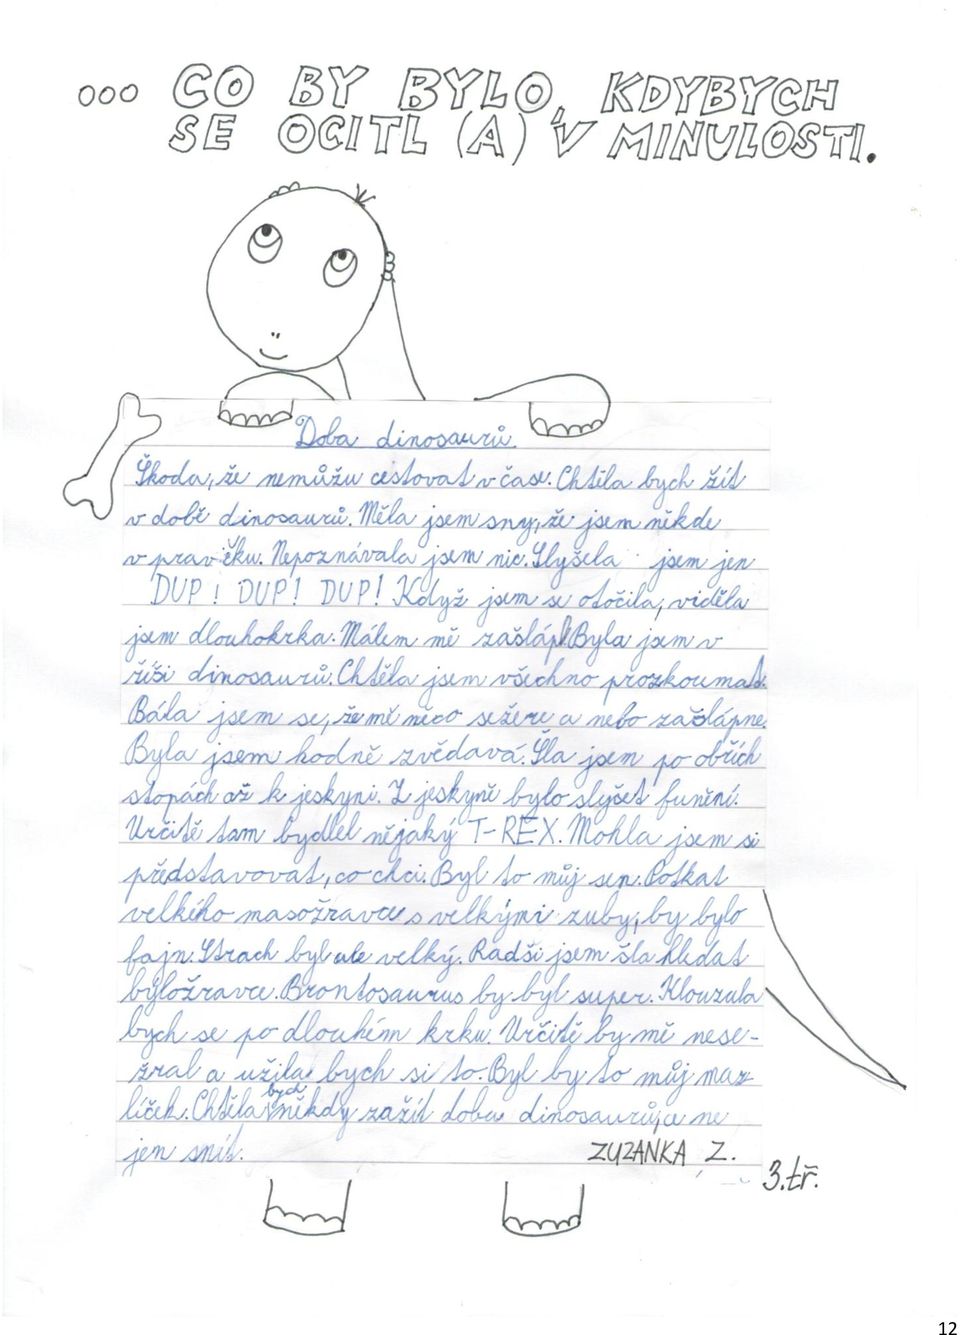 ... CO BY BYLO, KDYBYCH
SE OCITL (A) V MINULOSTI.
Doba dinosaurů.
Škoda, že nemůžu cestovat v čase. Chtěla bych žít
v době dinosaurů. Měla jsem sny, že jsem někde
v pravěku. Nepoznávala jsem nic. Slyšela jsem jen
DUP! DUP! DUP! Když jsem se otočila, viděla
jsem dlouhokrka. Málem mě zašlápl. Byla jsem v
říši dinosaurů. Chtěla jsem všechno prozkoumat.
Bála jsem se, že mě něco sežere a nebo zašlápne.
Byla jsem hodně zvědavá. Šla jsem po obřích
stopách až k jeskyni. Z jeskyně bylo slyšet funění.
Určitě tam bydlel nějaký T-REX. Mohla jsem si
představovat, co chci. Byl to můj sen. Potkat
velkého masožravce s velkými zuby, by bylo
fajn. Strach byl ale velký. Radši jsem šla hledat
býložravce. Brontosaurus by byl super. Klouzala
bych se po dlouhém krku. Určitě by mě nese-
žral a užila bych si to. Byl by to můj maz-
líček. Chtěla bych někdy zažít dobu dinosaurů, a ne
jen snít.
ZUZANKA Z.
3.tř.
12